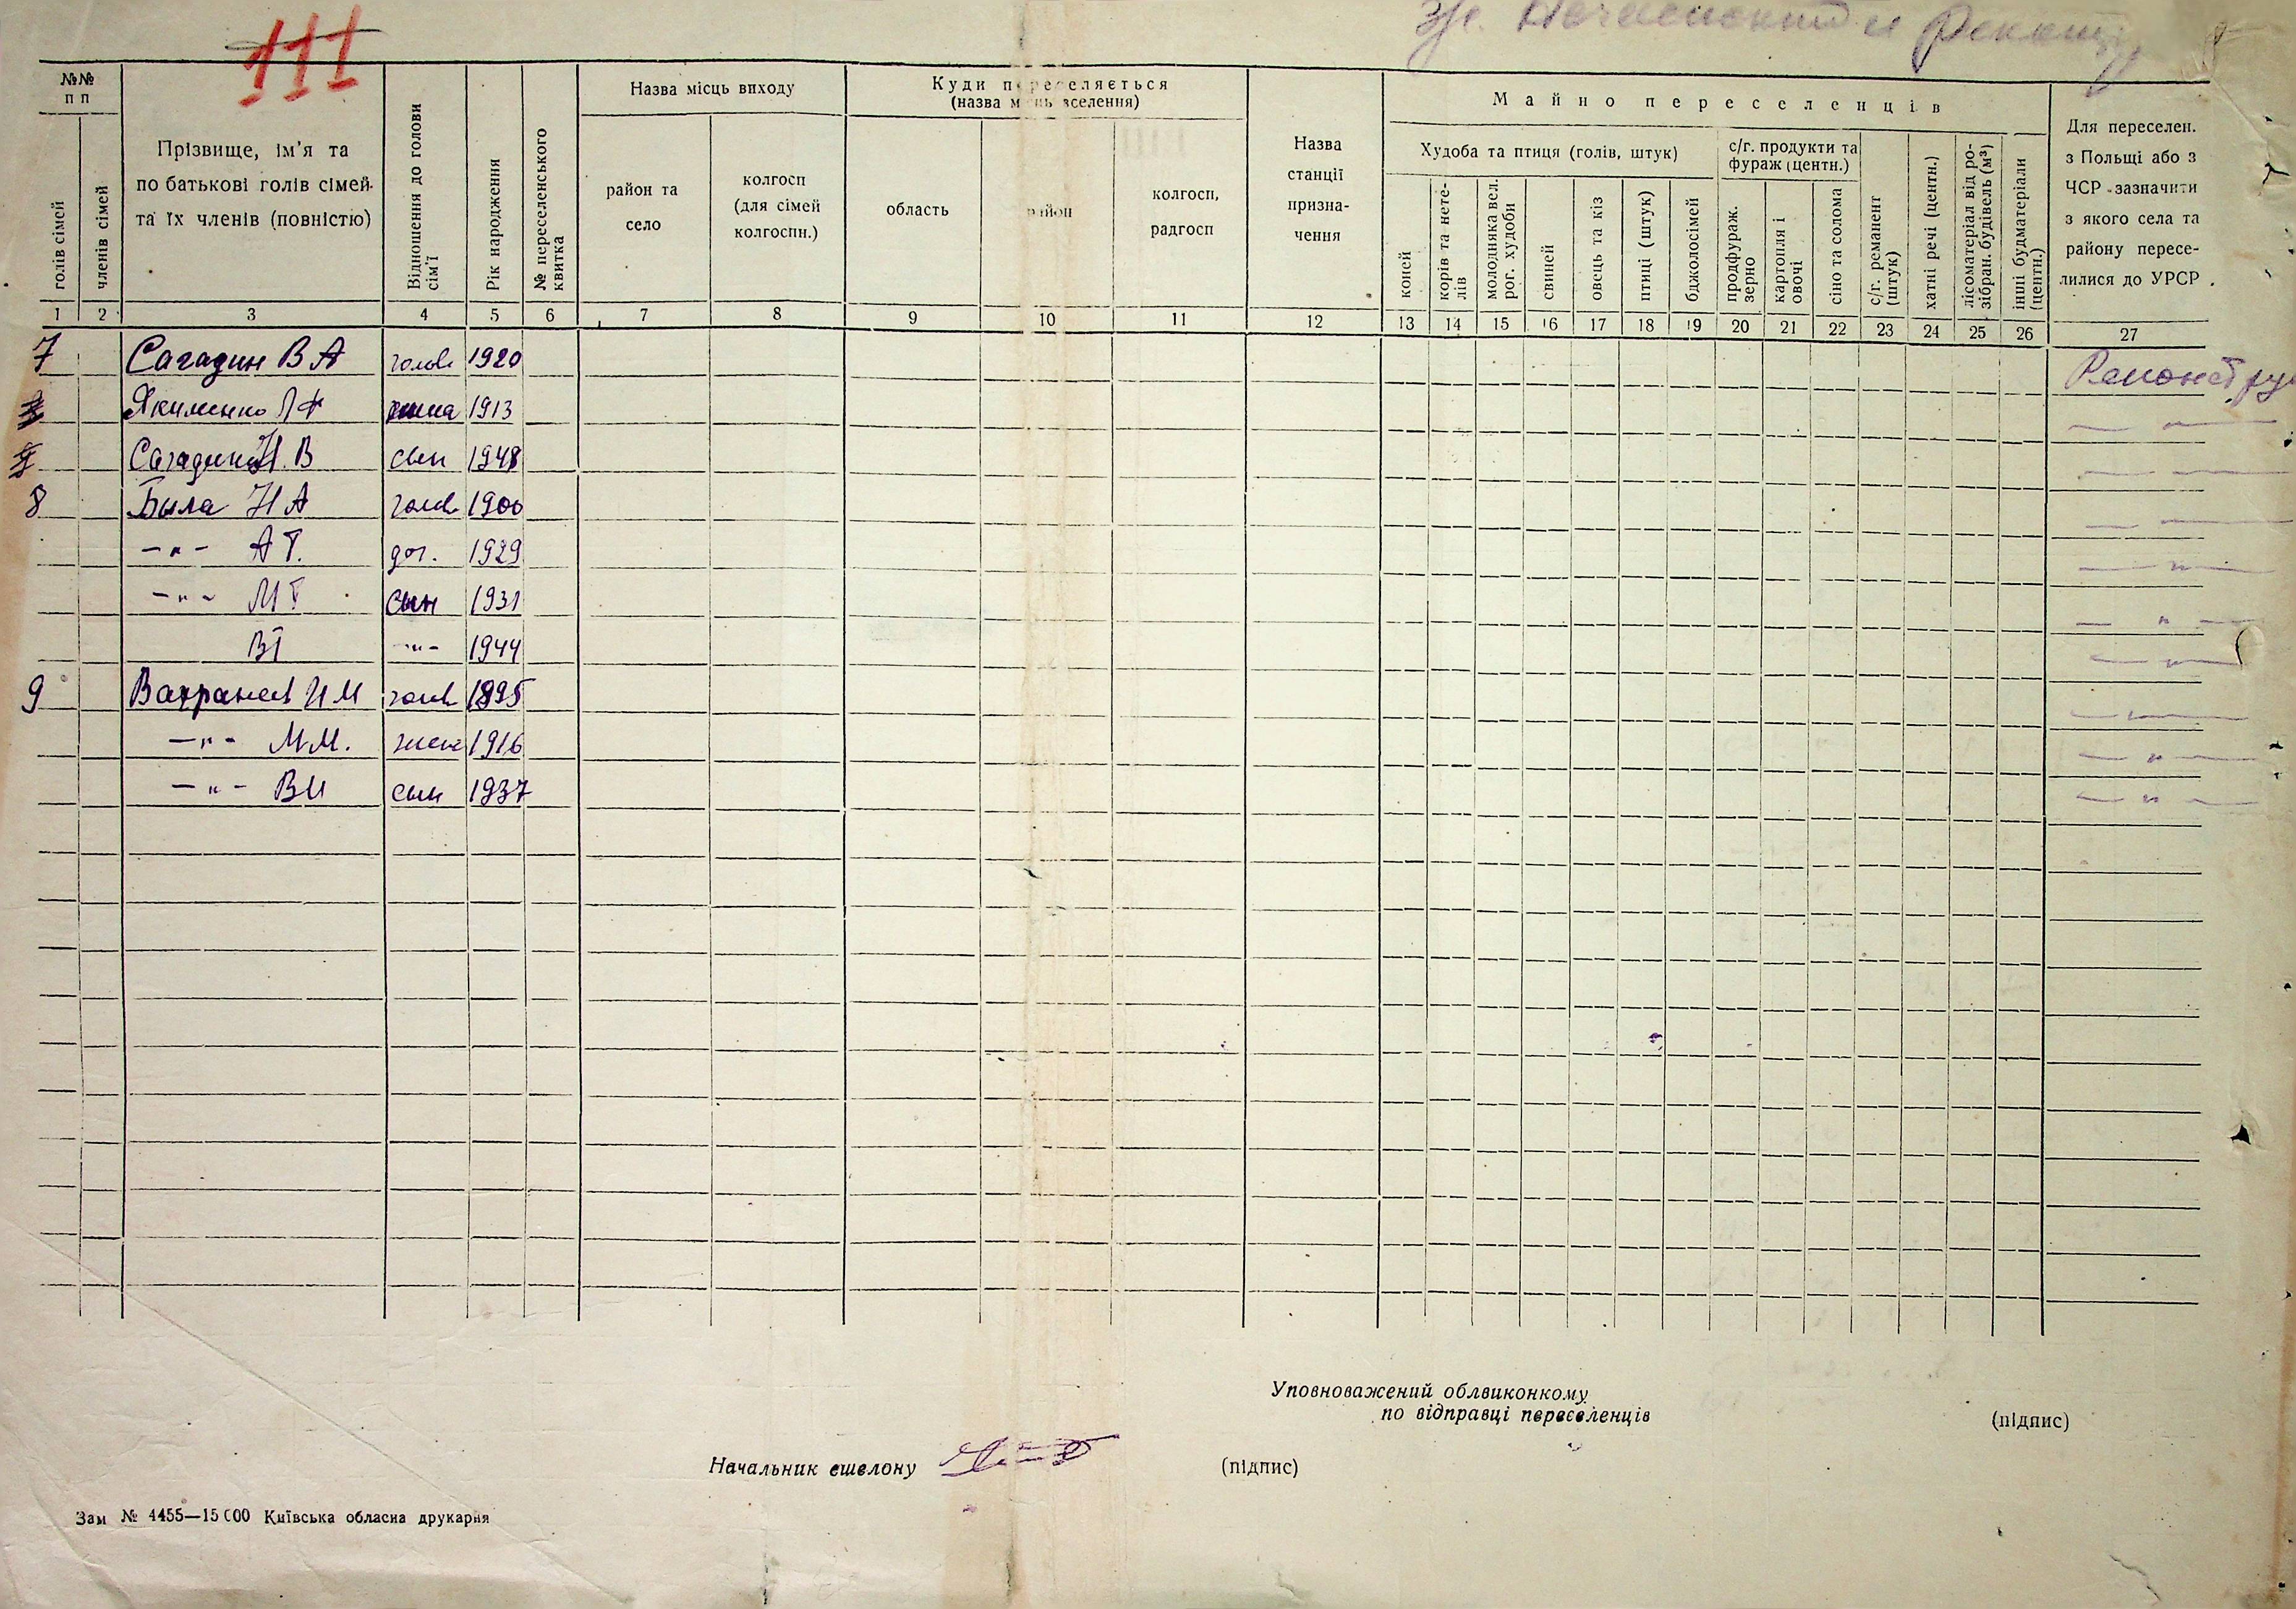 111
№№ п п
голів сімей
членів сімей
Прізвище, ім'я та по батькові голів сімей та їх членів (повністю)
Відношення до голови сім'ї
Рік народження
№ переселенського квитка
Назва місць виходу
район та село
колгосп (для сімей колгоспн.)
Куди переселяється
(назва місць вселення)
область
район
колгосп, радгосп
Назва станції призна-чення
Майно переселенців
Худоба та птиця (голів, штук)
коней
корів та нете-лів
молодняка вел. рог. худоби
свиней
овець та кіз
птиці (штук)
бджолосімей
с/г. продукти та фураж (центн.)
продфураж. зерно
картопля і овочі
сіно та солома
с/г. реманент (штук)
хатні речі (центн.)
лісоматеріал від ро-зібран. будівель (м³)
інші будматеріали (центн.)
Для переселен. з Польщі або з ЧСР зазначити з якого села та району пересе-лилися до УРСР.
1 2 3 4 5 6 7 8 9 10 11 12 13 14 15 16 17 18 19 20 21 22 23 24 25 26 27
7 Сагадин В А голов 1920
Якименко 1913
Сагадин Н. В сын 1948
8 Была Н А голов 1900
—"— А Т. доч. 1929
—"— М Т сын 1931
В Т —"— 1944
9 И М голов 1895
—"— М М. жена 1916
—"— В И сын 1937
Уповноважений облвиконкому
по відправці переселенців
(підпис)
Начальник ешелону
(підпис)
Зам № 4455—15000 Київська обласна друкарня